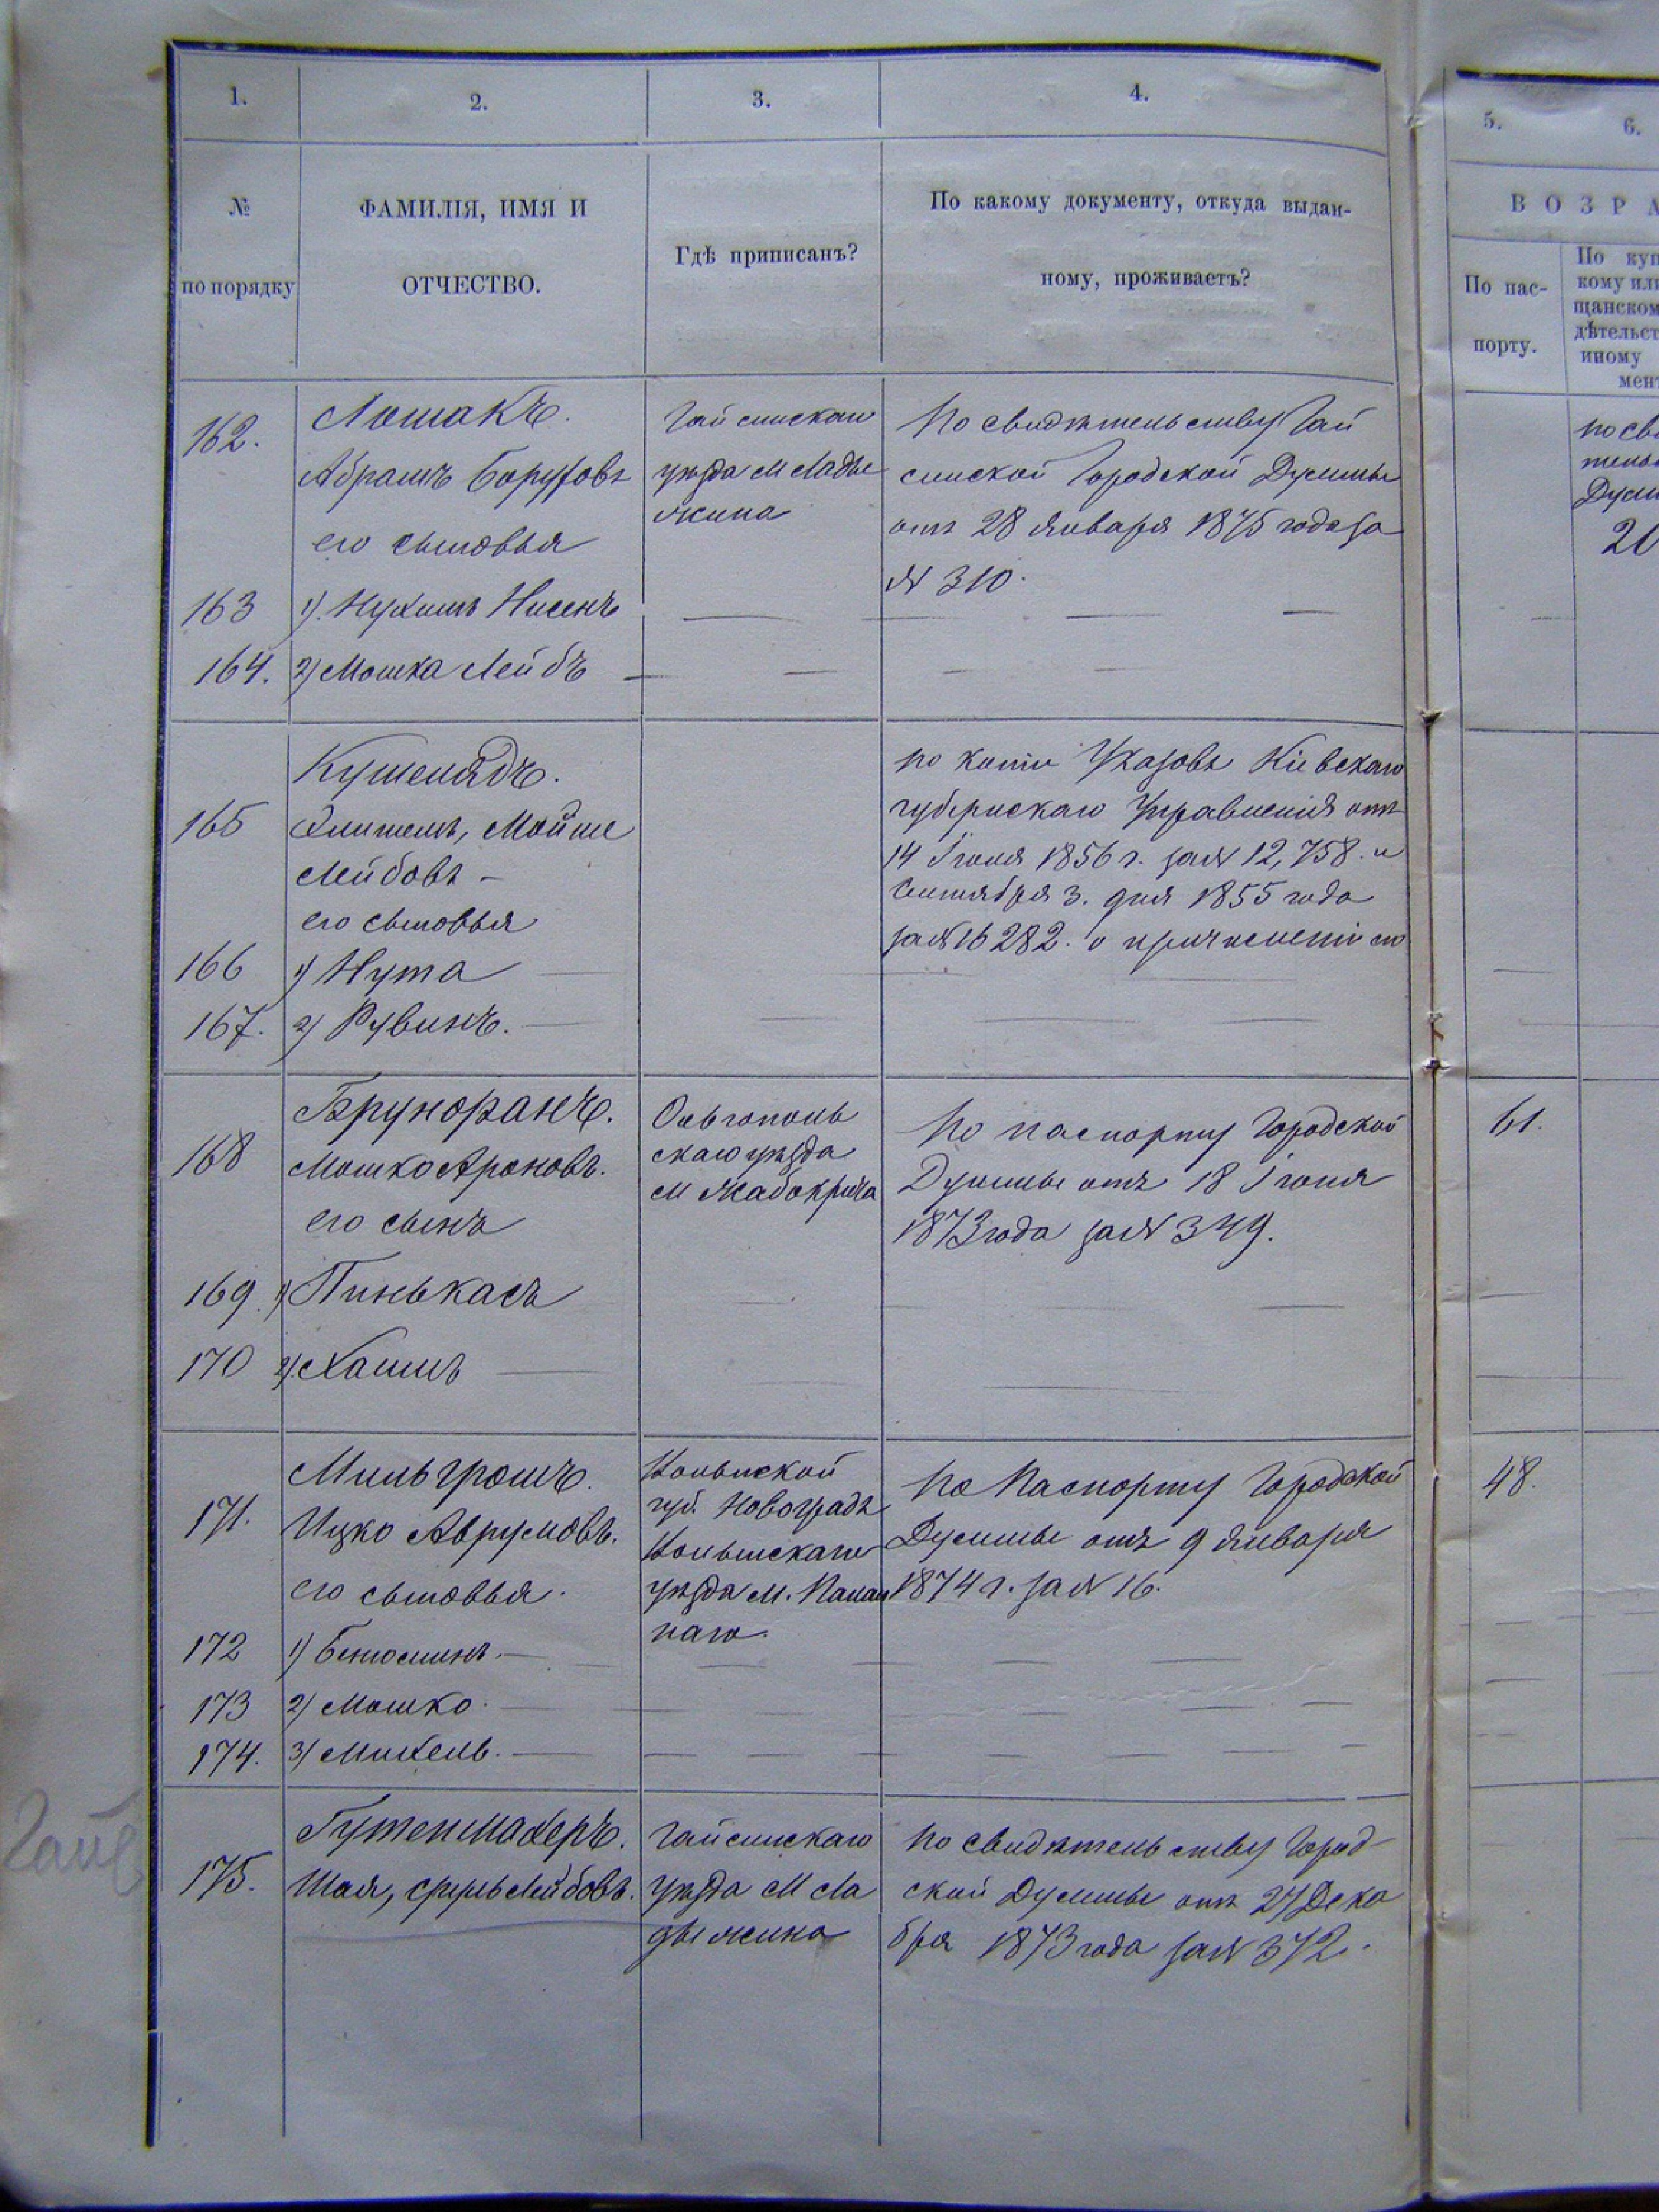 1.
2.
3.
4.
5.
6.
№
по порядку
ФАМИЛІЯ, ИМЯ И
ОТЧЕСТВО.
Гдѣ приписанъ?
По какому документу, откуда выдан-
ному, проживаетъ?
ВОЗРА
По пас-
порту.
По куп
кому или
щанском
дѣтельст
иному
мент
162.
Лошакъ.
Абрамъ Боруховъ
его сыновья
Гайсинскаго
уѣзда М Лады
жина
По свидѣтельству Гай
синской Городской Думы
отъ 28 Января 1875 года за
№ 310.
по сви
тель
Думы
20
163 1). Нухимъ Нисенъ
164. 2) Мошка Лейбъ
165
Кушенядъ.
Мойше
Лейбовъ
его сыновья
по копіи Указовъ Кіевскаго
губернскаго Управленія отъ
14 Іюня 1856 г. за № 12,758. и
Сентября 3. дня 1855 года
за № 16282. о причисленіи его
166 1) Нута
167. 2) Рувинъ.
168
Бруноранъ.
Мошко Ароновъ.
его сынъ
Ольгополь
скаго уѣзда
М Жабокрича
По паспорту Городской
Думы отъ 18 Іюня
1873 года за № 349.
61.
169. 1) Пинькасъ
170 2). Хаимъ
171.
Мильгромъ.
Ицко Аврумовъ.
его сыновья.
Волынской
губ. Новоградъ
Волынскаго
уѣзда м.
наго.
По Паспорту Городской
Думы отъ 9 Января
1874 г. за № 16.
48.
172 1) Беньоминъ.
173 2) Мошко.
174. 3) Михель.
Гайс
175.
Гутенмахеръ.
Шая, Сруль Лейбовъ.
Гайсинскаго
уѣзда М Ла
дыжина
По свидѣтельству Город
ской Думы отъ 27 Дека
бря 1873 года за № 372.